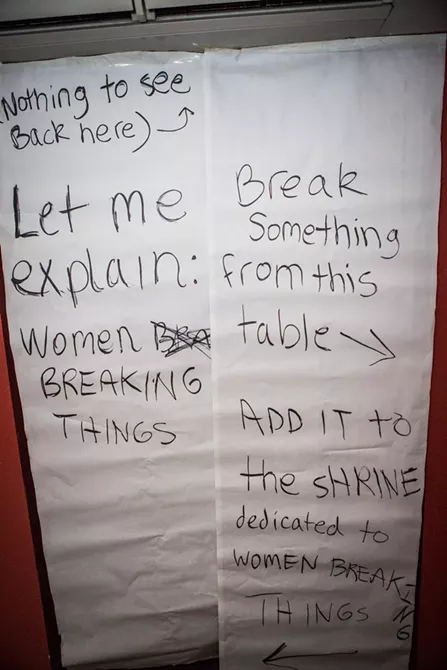 (Nothing to see
Back here)
Let me
explain:
Women
BREAKING
THINGS
Break
Something
from this
table
ADD IT to
the SHRINE
dedicated to
WOMEN BREAK-ING
THINGS